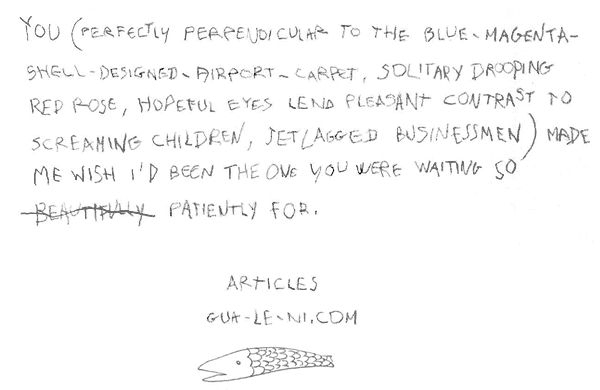 YOU (PERFECTLY PERPENDICULAR TO THE BLUE-MAGENTA-
SHELL-DESIGNED-AIRPORT-CARPET, SOLITARY DROOPING
RED ROSE, HOPEFUL EYES LEND PLEASANT CONTRAST TO
SCREAMING CHILDREN, JETLAGGED BUSINESSMEN) MADE
ME WISH I'D BEEN THE ONE YOU WERE WAITING SO
BEAUTIFULLY PATIENTLY FOR.
ARTICLES
GUA-LE-NI.COM